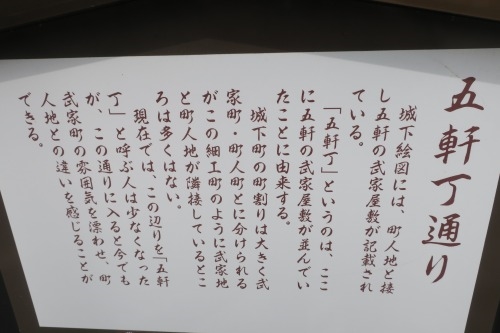 五軒丁通り
城下絵図には、町人地と接
し五軒の武家屋敷が記載され
ている。
「五軒丁」というのは、ここ
に五軒の武家屋敷が並んでい
たことに由来する。
城下町の町割りは大きく武
家町・町人町とに分けられる
がこの細工町のように武家地
と町人地が隣接しているとこ
ろは多くはない。
現在では、この辺りを「五軒
丁」と呼ぶ人は少なくなった
が、この通りに入ると今でも
武家町の雰囲気を漂わせ、町
人地との違いを感じることが
できる。